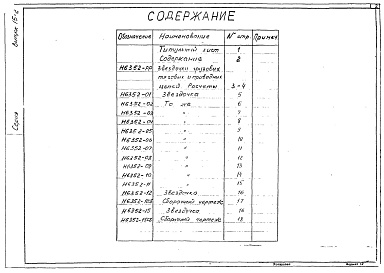 СОДЕРЖАНИЕ
Обозначение Наименование № стр. Примеч
Титульный лист 1
Содержание 2
Н6352-РР Звездочки грузовых
тяговых и приводных
цепей Расчеты 3-4
Н6352-01 Звездочка 5
Н6352-02 То же 6
Н6352-03 " 7
Н6352-04 " 8
Н6352-05 " 9
Н6352-06 " 10
Н6352-07 " 11
Н6352-08 " 12
Н6352-09 " 13
Н6352-10 " 14
Н6352-11 " 15
Н6352-12 Звездочка 16
Сборочный чертеж 17
Н6352-15 Звездочка 18
Сборочный чертеж
Выпуск
Серия